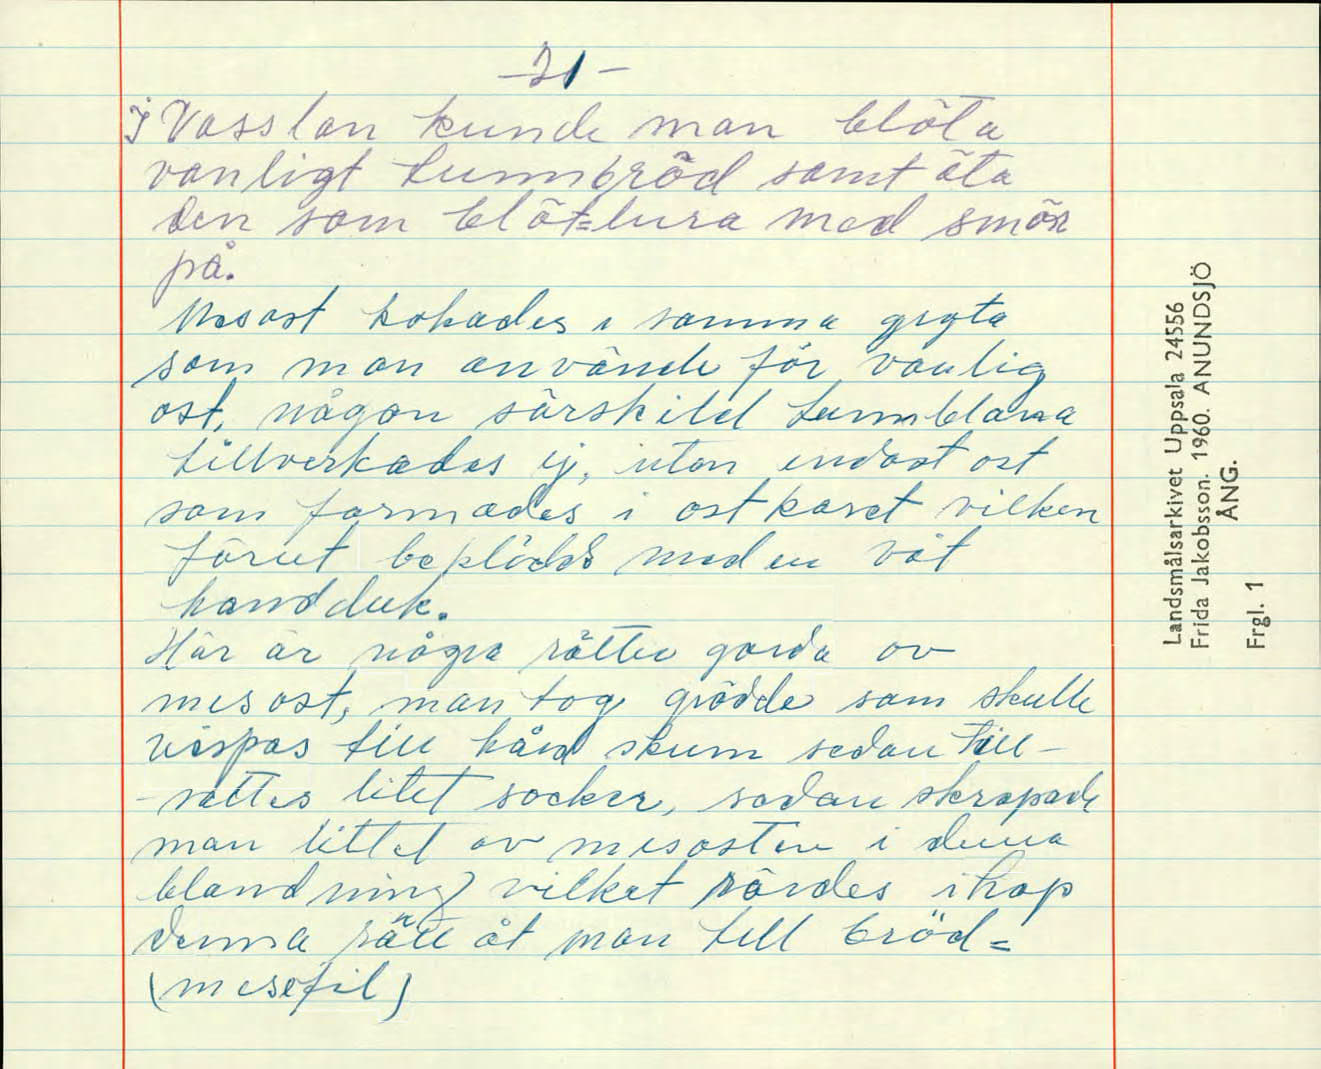 -21-
I Vasslan kunde man blöta
vanligt tunnbröd samt äta
den som blöt=lura med smör
på.
Mesost kokades i samma gryta
som man använde för vanlig
ost, någon särskild
tillverkades ej, utan endast ost
som formades i ostkaret vilken
förut beplädds med en våt
handduk.
Här är några rätter gorda av
mesost, man tog grädde som skulle
vispas till hård skum sedan till-
-sattes litet socker, sedan skrapade
man littet av mesosten i denna
blandning vilket rördes ihop
denna rätt åt man till bröd=
(mesefil)
Landsmålsarkivet Uppsala 24556
Frida Jakobsson. 1960. ANUNDSJÖ
ÅNG.
Frgl. 1